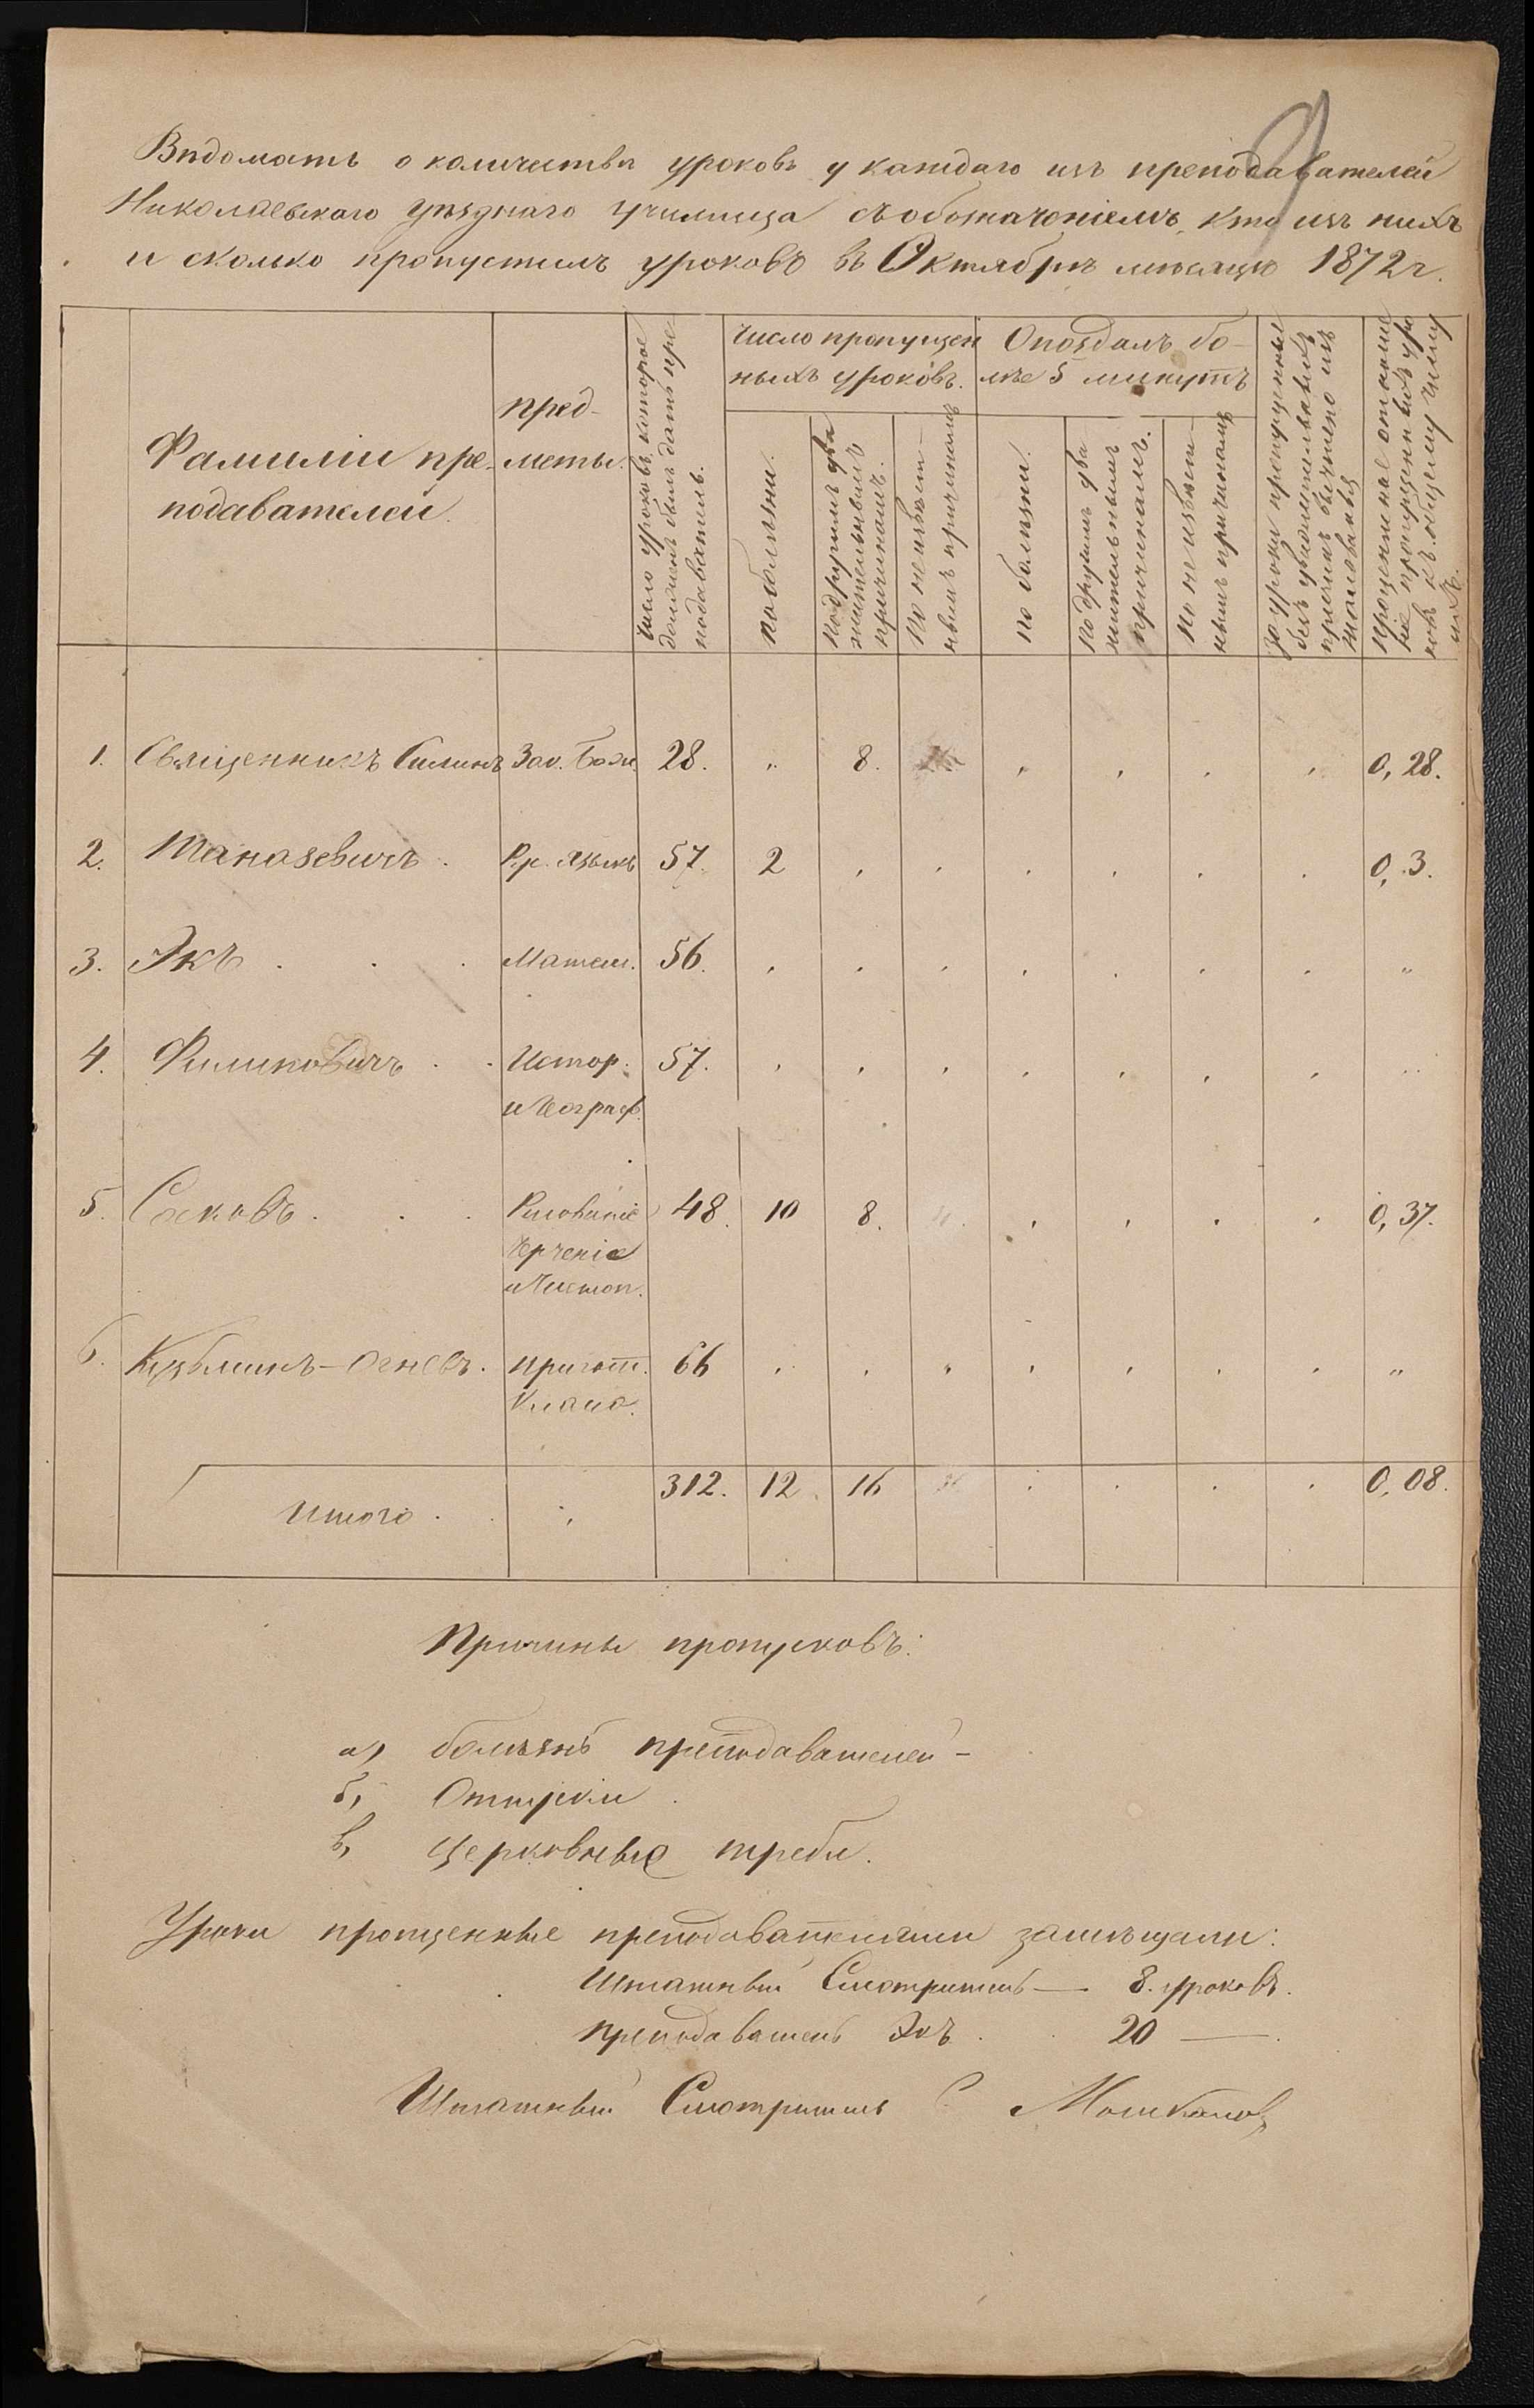 Вѣдомость о количествѣ уроковъ у каждаго изъ преподавателей
Николаевскаго уѣзднаго училища съ обозначеніемъ, кто изъ нихъ
и сколько пропустилъ уроковъ въ Октябрѣ мѣсяцѣ 1872 г.
Фамиліи пре-
подавателей.
пред-
меты.
Число уроковъ, которое
долженъ былъ дать пре
подаватель.
Число пропущен
ныхъ уроковъ.
По болѣзни.
По другимъ ува
жительнымъ
причинамъ.
По неизвѣст-
нымъ причинамъ
Опоздалъ бо-
лѣе 5 минутъ
по болѣзни.
По другимъ ува
жительнымъ
причинамъ.
По неизвѣст-
нымъ причинамъ
За уроки пропущенные
безъ уважительныхъ
причинъ вычтено изъ
жалованья
Процентное отноше
ніе пропущенныхъ уро
ковъ къ общему числу
ихъ.
1. Священникъ Зак. Божі. 28. „ 8. „ „ „ „ 0, 28.
2. Таназевичъ. Рус. языкъ 57. 2 „ „ „ „ „ „ 0, 3.
3. Экъ . . . Матем. 56. „ „ „ „ „ „ „ „
4. Филиповичъ . . Истор. 57. „ „ „ „ „ „ „ „
и Географ.
5. Сѣковъ . . . Рисованіе 48. 10 8. „ „ „ „ 0, 37.
Черченіе
и Чистоп.
6. Кузьминъ-Огневъ. Пригот. 66 „ „ „ „ „ „ „ „
Класс.
Итого . . 312. 12. 16 „ „ „ „ 0, 08.
Причины пропусковъ:
а) болѣзнь преподавателей -
б) Отпуски .
в) Церковные требы.
Уроки пропущенные преподавателями замѣщали:
Штатный Смотритель — 8. уроковъ.
преподаватель Экъ . 20 — .
Штатный Смотритель